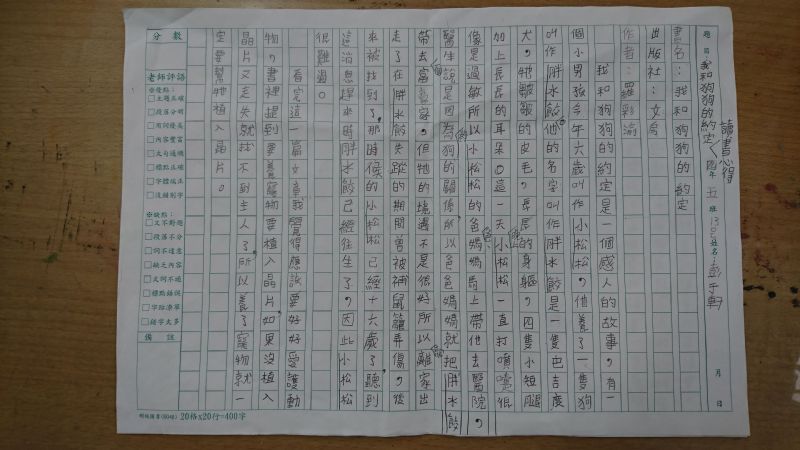 讀書心得
題目 我和狗狗的約定 四年 五班 13號 姓名 彭子軒
月 日
書名：我和狗狗的約定
出版社：文房
作者：羅彩渝
我和狗狗的約定是一個感人的故事，有一
個小男孩今年六歲叫作小松松，他養了一隻狗
叫作胖水餃他的名字叫作胖水餃是一隻巴吉度
犬，牠皺皺的皮毛，長長的身軀，四隻小短腿
加上長長的耳朵。這一天小松松一直打噴嚏很
像是過敏所以小松松的爸媽媽馬上帶他去醫院，
醫生說是因為狗的關係所以爸爸媽媽就把胖水餃
帶去富爸家，但牠的境遇不是很好所以離家出
走了在胖水餃失蹤的期間曾被補鼠籠弄傷，後
來被找到了，那時候的小松松已經十六歲了，聽到
這消息趕來時胖水餃已經往生了，因此小松松
很難過。
看完這一篇文章我覺得應該要好好愛護動
物，書裡提到要養寵物要植入晶片，如果沒植入
晶片又走失就找不到主人了，所以養了寵物就一
定要幫牠植入晶片。
分數
老師評語
※優點：
□主題正確
□段落分明
□用詞優美
□內容豐富
□文句通順
□標點正確
□字體端正
□沒錯別字
※缺點：
□文不對題
□段落不分
□詞不達意
□缺乏內容
□文詞不通
□標點錯誤
□字跡潦草
□錯字太多
備註
20格x20行=400字